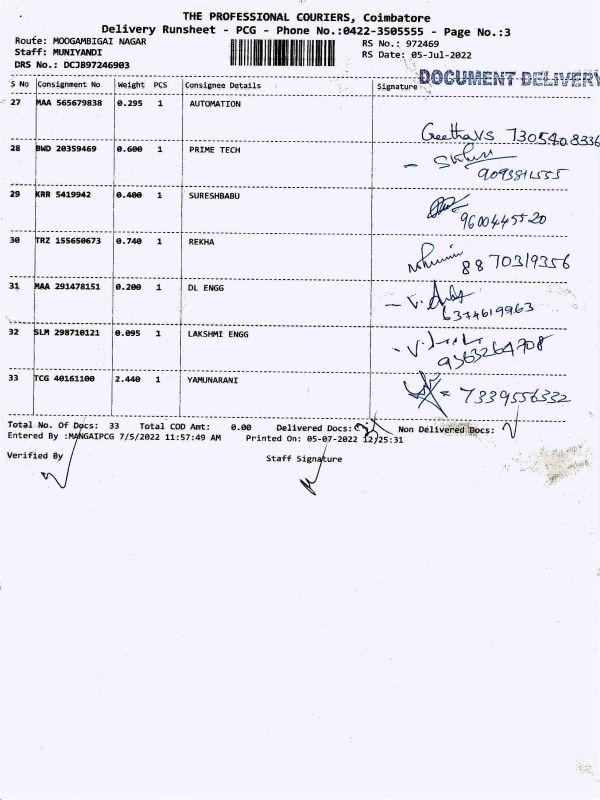 THE PROFESSIONAL COURIERS, Coimbatore
Delivery Runsheet - PCG - Phone No.:0422-3505555 - Page No.:3
Route: MOOGAMBIGAI NAGAR RS No.: 972469
Staff: MUNIYANDI RS Date: 05-Jul-2022
DRS No.: DCJB97246903
DOCUMENT DELIVERY
S No Consignment No Weight PCS Consignee Details Signature
27 MAA 565679838 0.295 1 AUTOMATION
Geetha VS 7305408336
28 BWD 20359469 0.600 1 PRIME TECH
29 KRR 5419942 0.400 1 SURESHBABU
9600445520
30 TRZ 155650673 0.740 1 REKHA
8870319356
31 MAA 291478151 0.200 1 DL ENGG
6374619963
32 SLM 298710121 0.095 1 LAKSHMI ENGG
9363264708
33 TCG 40161100 2.440 1 YAMUNARANI
7339556332
Total No. Of Docs: 33 Total COD Amt: 0.00 Delivered Docs: Non Delivered Docs:
Entered By :MANGAIPCG 7/5/2022 11:57:49 AM Printed On: 05-07-2022 12:25:31
Verified By Staff Signature